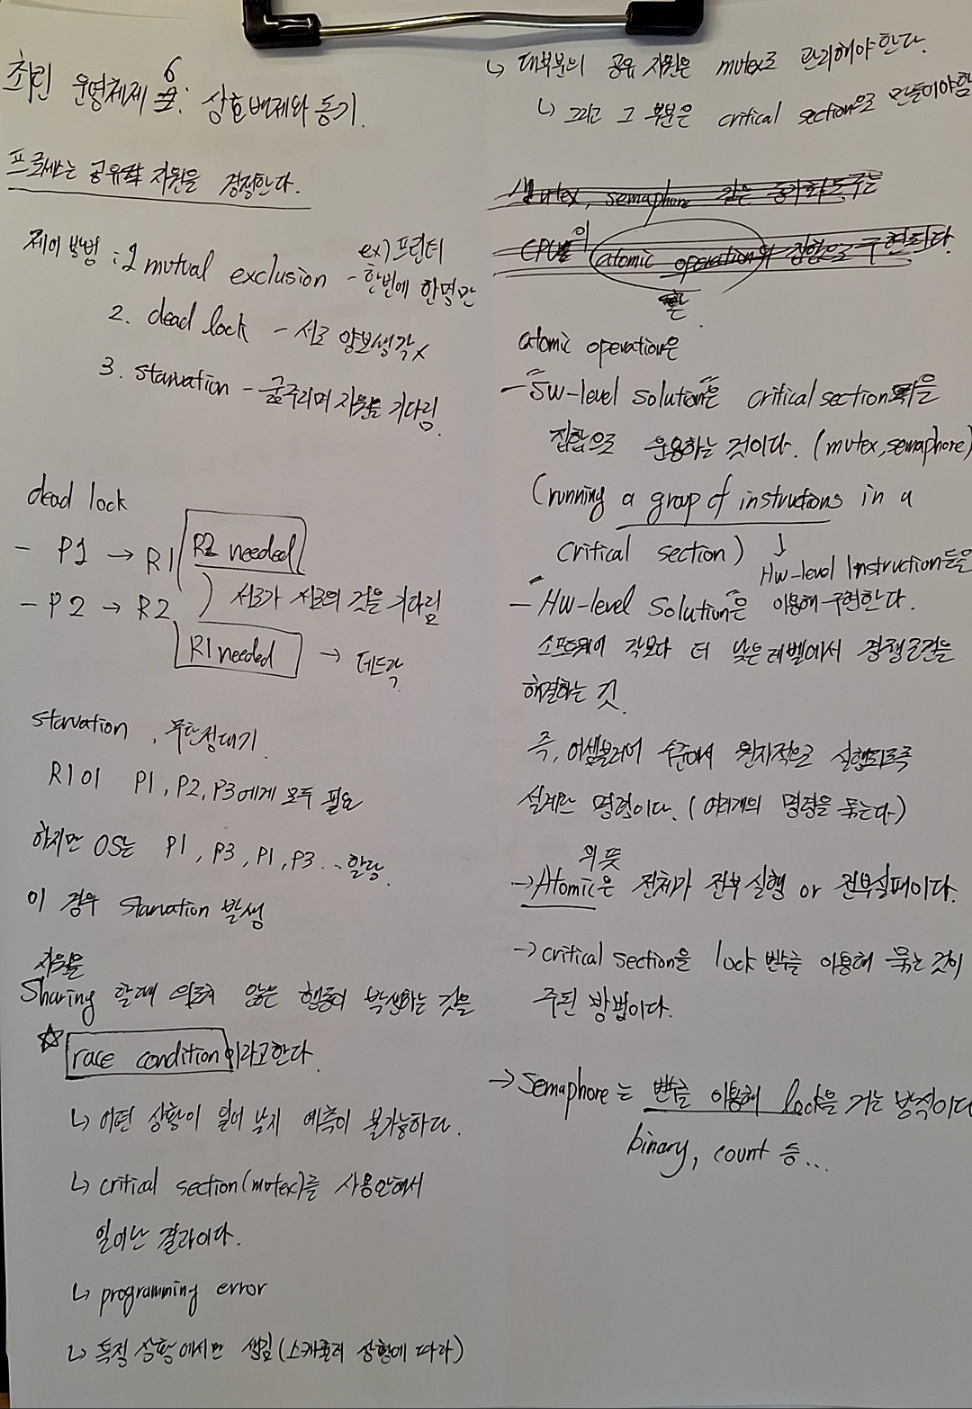 최린 운영체제 6: 상호배제와 동기.
프로세스는 공유 자원을 경쟁한다.
제어 방법 : 1 mutual exclusion - 한번에 한명만
ex) 프린터
2. dead lock - 서로 양보생각x
3. starvation - 굶주리며 자원을 기다림.
dead lock
- P1 → R1 ( R2 needed
- P2 → R2 ) 서로가 서로의 것을 기다림
R1 needed → 데드락.
starvation, 무한정대기.
R1이 P1, P2, P3에게 모두 필요
하지만 OS는 P1, P3, P1, P3... 할당.
이 경우 starvation 발생
자원을
sharing 할때 의도치 않은 행동이 발생하는 것을
☆ race condition이라고한다.
↳ 어떤 상황이 일어 날지 예측이 불가능하다.
↳ critical section(mutex)를 사용안해서
일어난 결과이다.
↳ programming error
↳ 특정 상황에서만 생김 (스케쥴러 상황에 따라)
↳ 대부분의 공유 자원은 mutex로 관리해야한다.
↳ 그리고 그 부분은 critical section으로 만들어야함
mutex, semaphore 같은 동기화 도구는
CPU의 atomic operation의 집합으로 구현된다
atomic operation은
- "SW-level solution"은 critical section을
집합으로 운용하는 것이다. (mutex, semaphore)
(running a group of instructions in a
critical section) ↓
HW-level Instruction들을
- "HW-level Solution"은 이용해 구현한다.
소프트웨어 각보다 더 낮은 레벨에서 경쟁조건을
해결하는 것.
즉, 어셈블러어 수준에서 원자적으로 실행되도록
설계한 명령이다. (여러개의 명령을 묶는다)
의 뜻
→ Atomic은 전체가 전부 실행 or 전부실패이다.
→ critical section을 lock 변수를 이용해 묶는 것이
주된 방법이다.
→ semaphore는 변수를 이용해 lock을 거는 방식이다
binary, count 등...